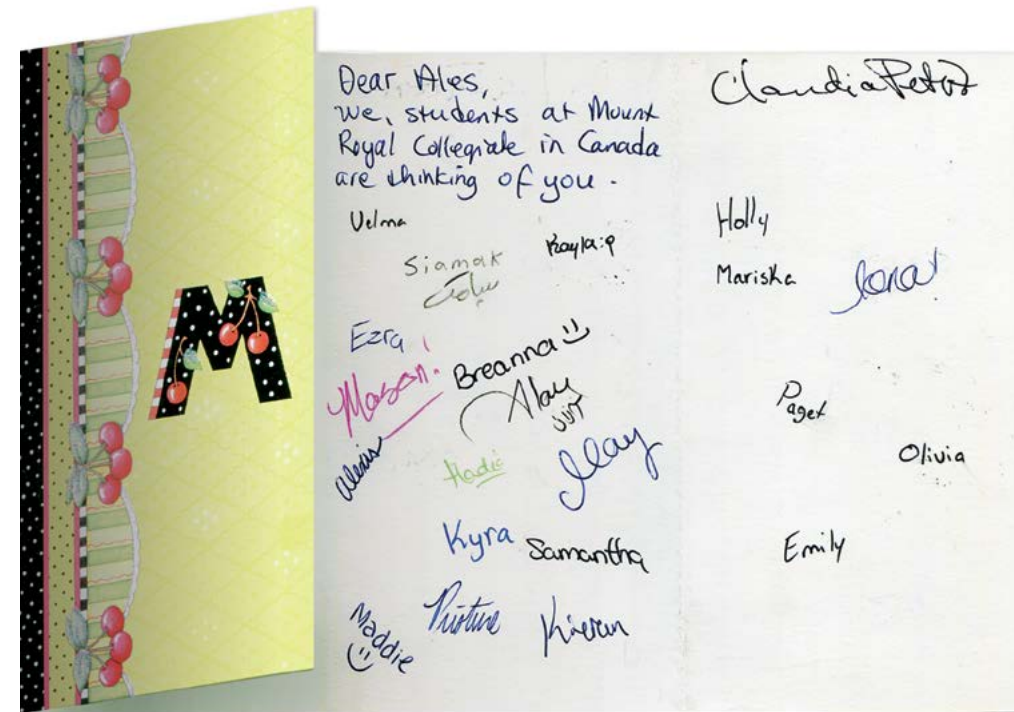 M
Dear Ales,
we, students at Mount
Royal Collegiate in Canada
are thinking of you.
Velma
Kayla :p
Siamak
سیامک
Ezra
Mason!
Breanna
Alexis
Hadia
May
Kyra
Samantha
Maddie
Kieran
Claudia
Holly
Mariska
Paget
Olivia
Emily